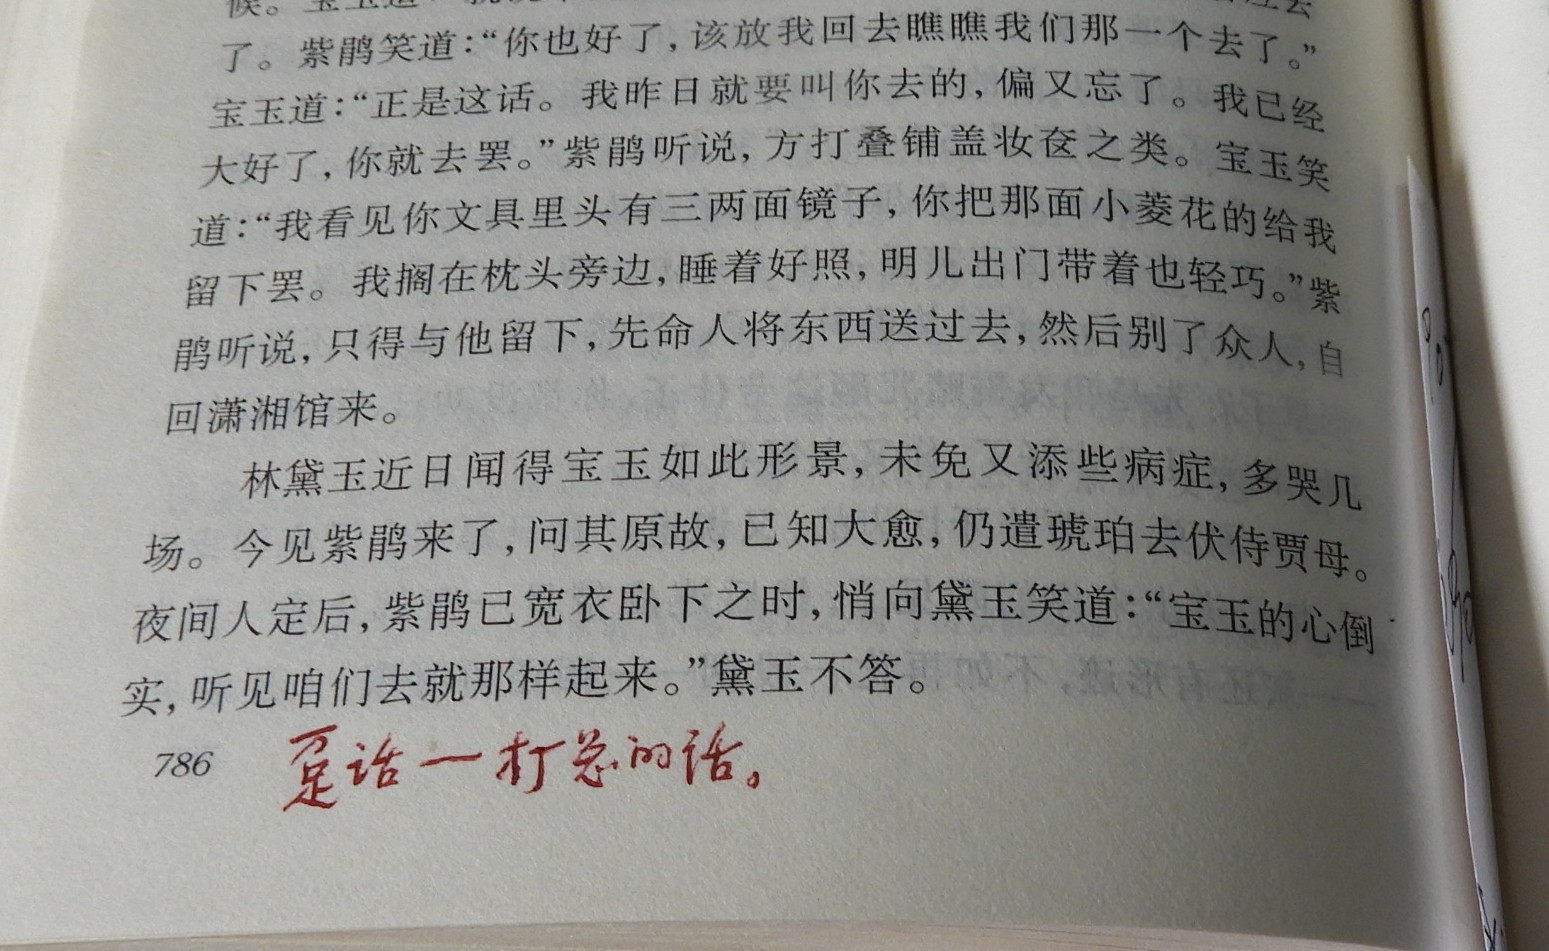 了。紫鹃笑道：“你也好了，该放我回去瞧瞧我们那一个去了。”
宝玉道：“正是这话。我昨日就要叫你去的，偏又忘了。我已经
大好了，你就去罢。”紫鹃听说，方打叠铺盖妆奁之类。宝玉笑
道：“我看见你文具里头有三两面镜子，你把那面小菱花的给我
留下罢。我搁在枕头旁边，睡着好照，明儿出门带着也轻巧。”紫
鹃听说，只得与他留下，先命人将东西送过去，然后别了众人，自
回潇湘馆来。
林黛玉近日闻得宝玉如此形景，未免又添些病症，多哭几
场。今见紫鹃来了，问其原故，已知大愈，仍遣琥珀去伏侍贾母。
夜间人定后，紫鹃已宽衣卧下之时，悄向黛玉笑道：“宝玉的心倒
实，听见咱们去就那样起来。”黛玉不答。
786
话一打总的话。